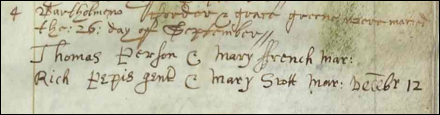 4 Bartholmew fforder & grace greene were maried
the: 26. day of September //
Thomas Person & Mary ffrench mar:
Rich Pepis gent & Mary Scott mar: decēbr 12